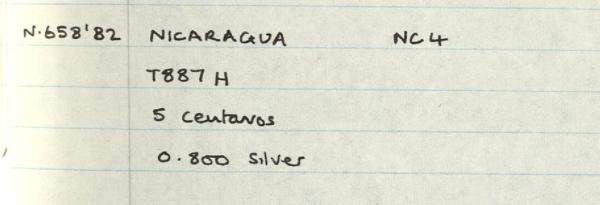 N.658'82 NICARAGUA NC4
T887 H
5 Centavos
0.800 Silver